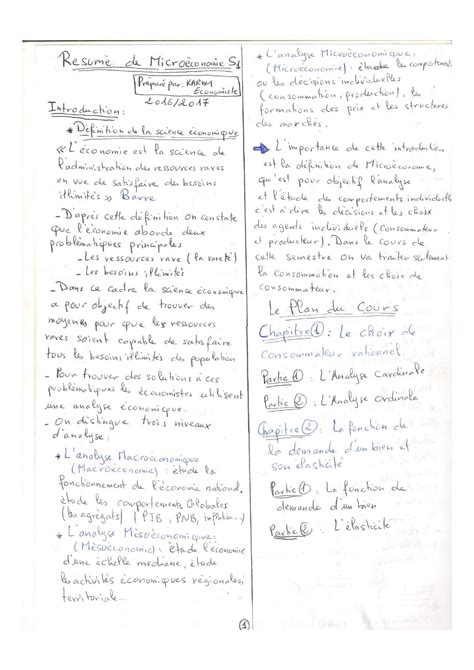 Resumé de Microéconomie S1
Préparé par: KARIM
Économiste
2016/2017
Introduction:
* Définition de la science économique
« L'économie est la science de
l'administration des ressources rares
en vue de satisfaire des besoins
illimités » Barre
- D'après cette définition on constate
que l'économie aborde deux
problématiques principales
- Les ressources rare (la rareté)
- Les besoins illimités
- Dans ce cadre la science économique
a pour objectif de trouver des
moyens pour que les ressources
rares soient capable de satisfaire
tous les besoins illimités des population
- Pour trouver des solutions à ces
problématiques les économistes utilisent
une analyse économique.
- On distingue trois niveaux
d'analyse:
* L'analyse Macroéconomique
(Macroéconomie) : étude la
fonctionnement de l'économie national,
étude les comportements Globales
(les agrégats) (PIB, PNB, inflation...)
* L'analyse Mésoéconomique:
(Mésoéconomie): étude l'économie
d'une échelle médiane, étude
les activités économiques régionales,
territoriale...
* L'analyse Microéconomique:
(Microéconomie) : étude les comportements
ou les décisions individuelles
(consommation, production), la
formations des prix et les structures
des marchés.
L'importance de cette introduction
est la définition de Microéconomie,
qu'est pour objectif l'analyse
et l'étude des comportements individuelle
c'est à dire les décisions et les choix
des agents individuels (consommateur
et producteur). Dans le cours de
cette semestre on va traiter seulement
la consommation et les choix de
consommateur.
Le Plan du Cours
Chapitre 1 : Le choix de
consommateur rationnel
Partie 1 : L'Analyse Cardinale
Partie 2 : L'Analyse Ordinale
Chapitre 2 : La fonction de
la demande d'un bien et
son élasticité
Partie 1 : La fonction de
demande d'un bien
Partie 2 : L'élasticité
1